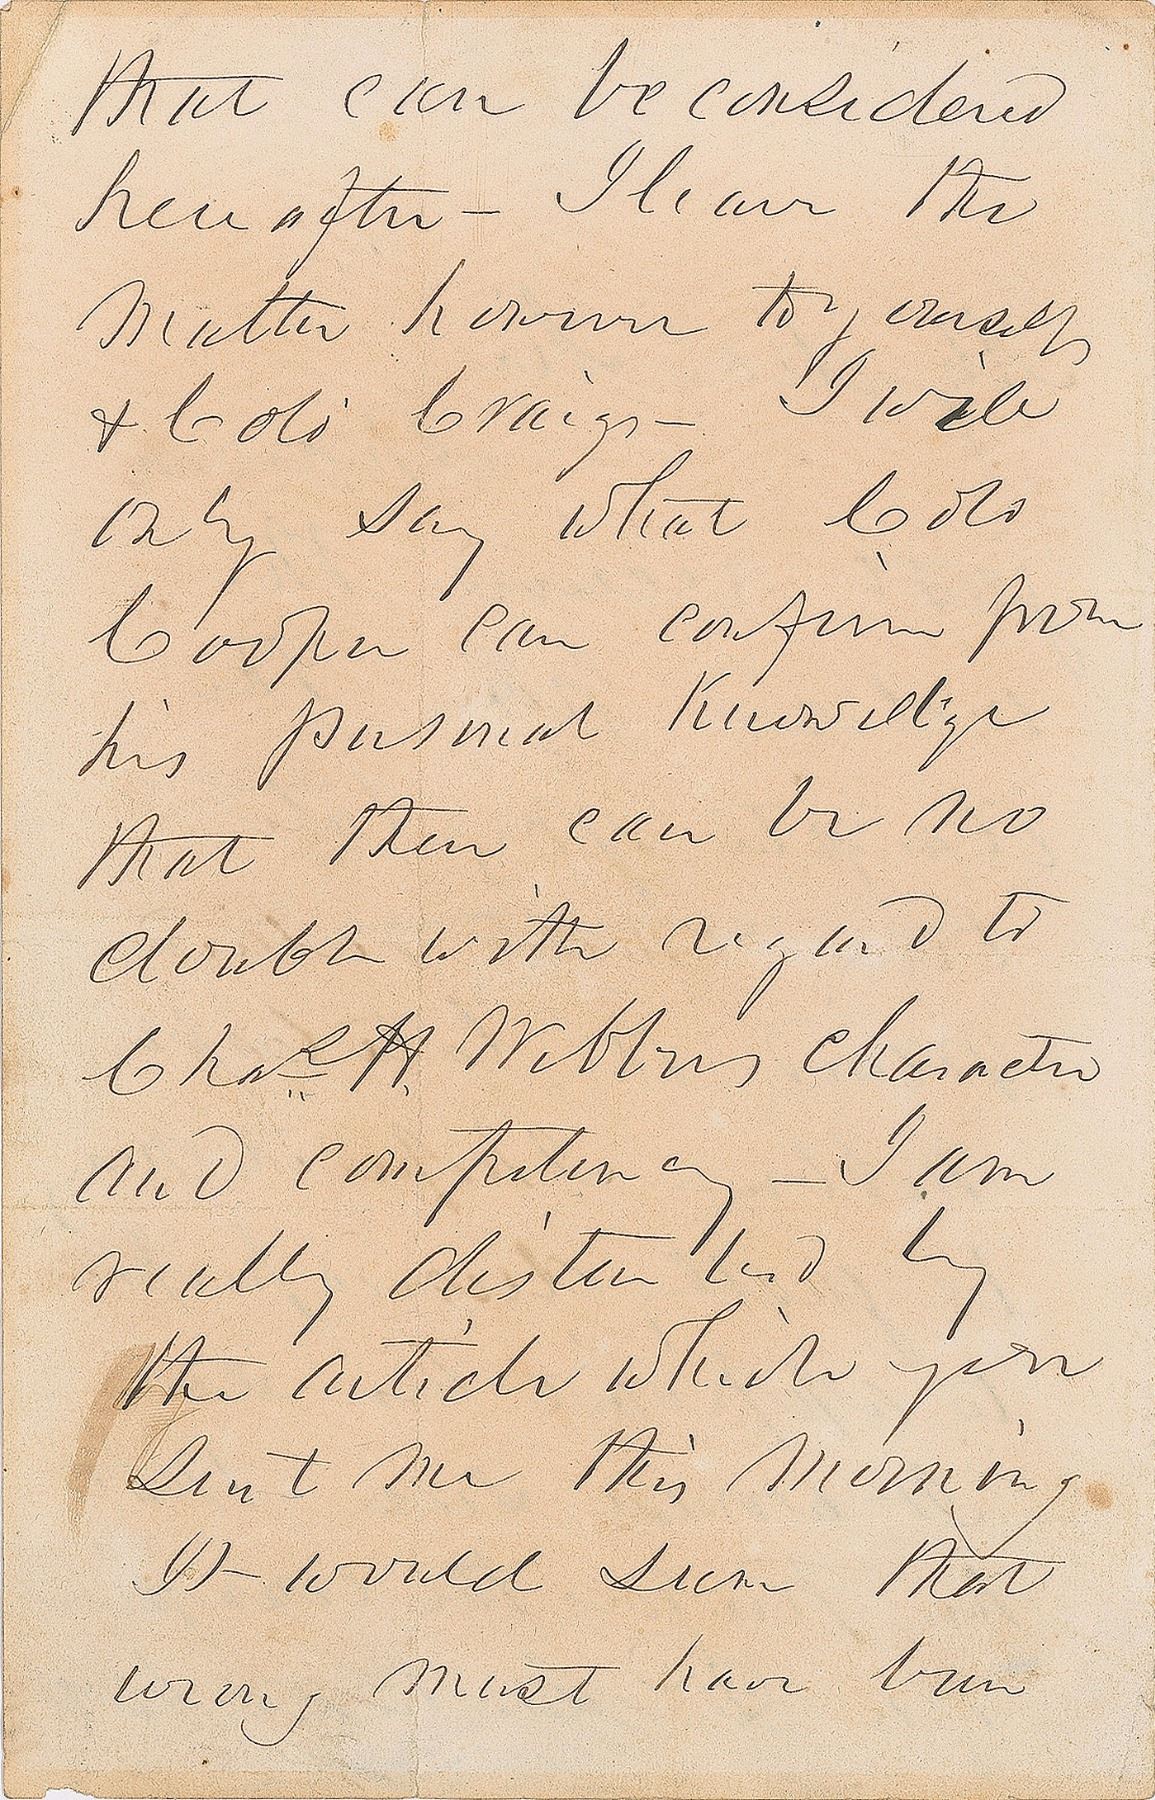 that can be considered
hereafter – I leave the
matter however to yourself
& Col. Craig – I will
only say what Col.
Cooper can confirm from
his personal Knowledge
that there can be no
doubt with regard to
Chas H character
and competency – I am
really disturbed by
the article which you
sent me this morning
It would seem that
wrong must have been